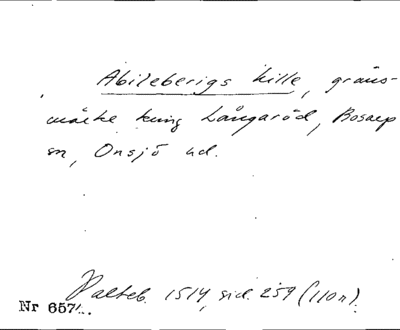 Abileberigs kille, gräns-
märke kring Långaröd, Bosarp
sn, Onsjö hd.
Palteb. 1514, sid. 259 (110r).
Nr 657